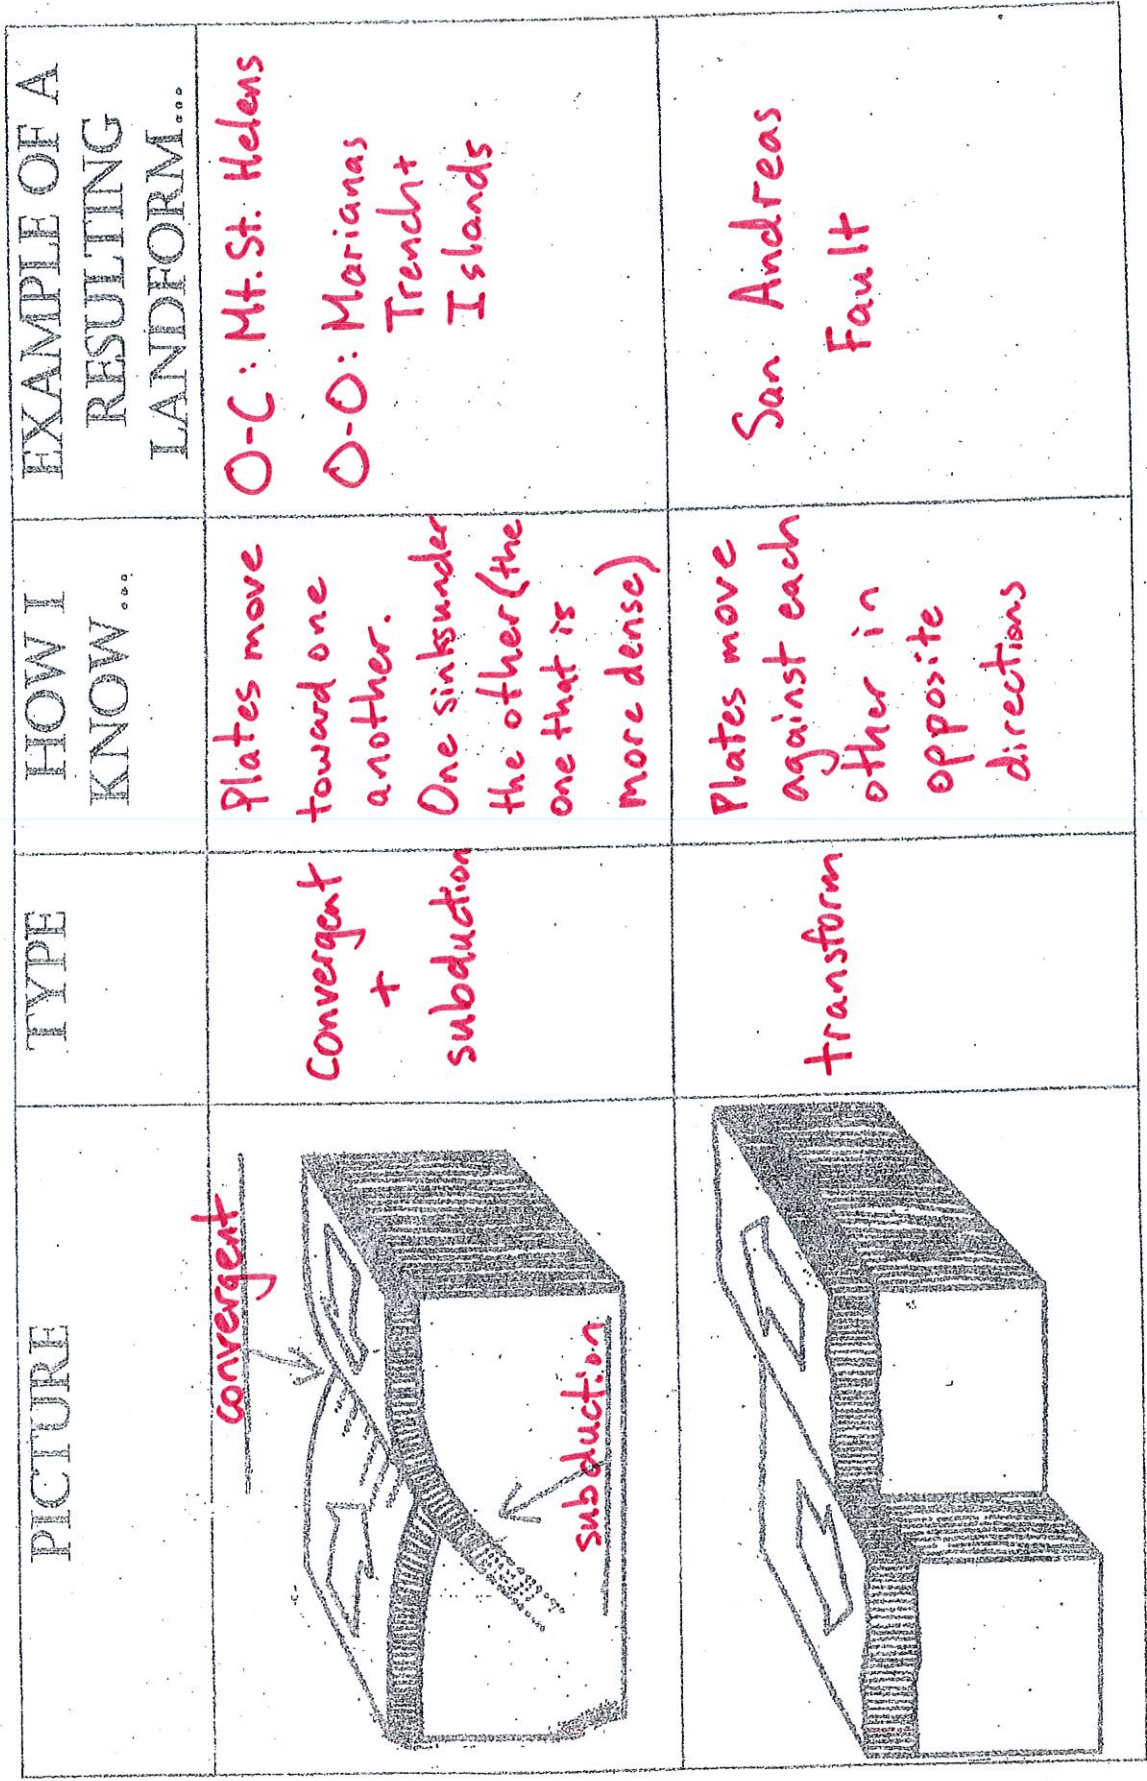 PICTURE
TYPE
HOW I
KNOW...
EXAMPLE OF A
RESULTING
LANDFORM...
convergent
subduction
Convergent
+
subduction
Plates move
toward one
another.
One sinks under
the other (the
one that is
more dense)
O-C: Mt. St. Helens
O-O: Marianas
Trench +
Islands
transform
Plates move
against each
other in
opposite
directions
San Andreas
Fault